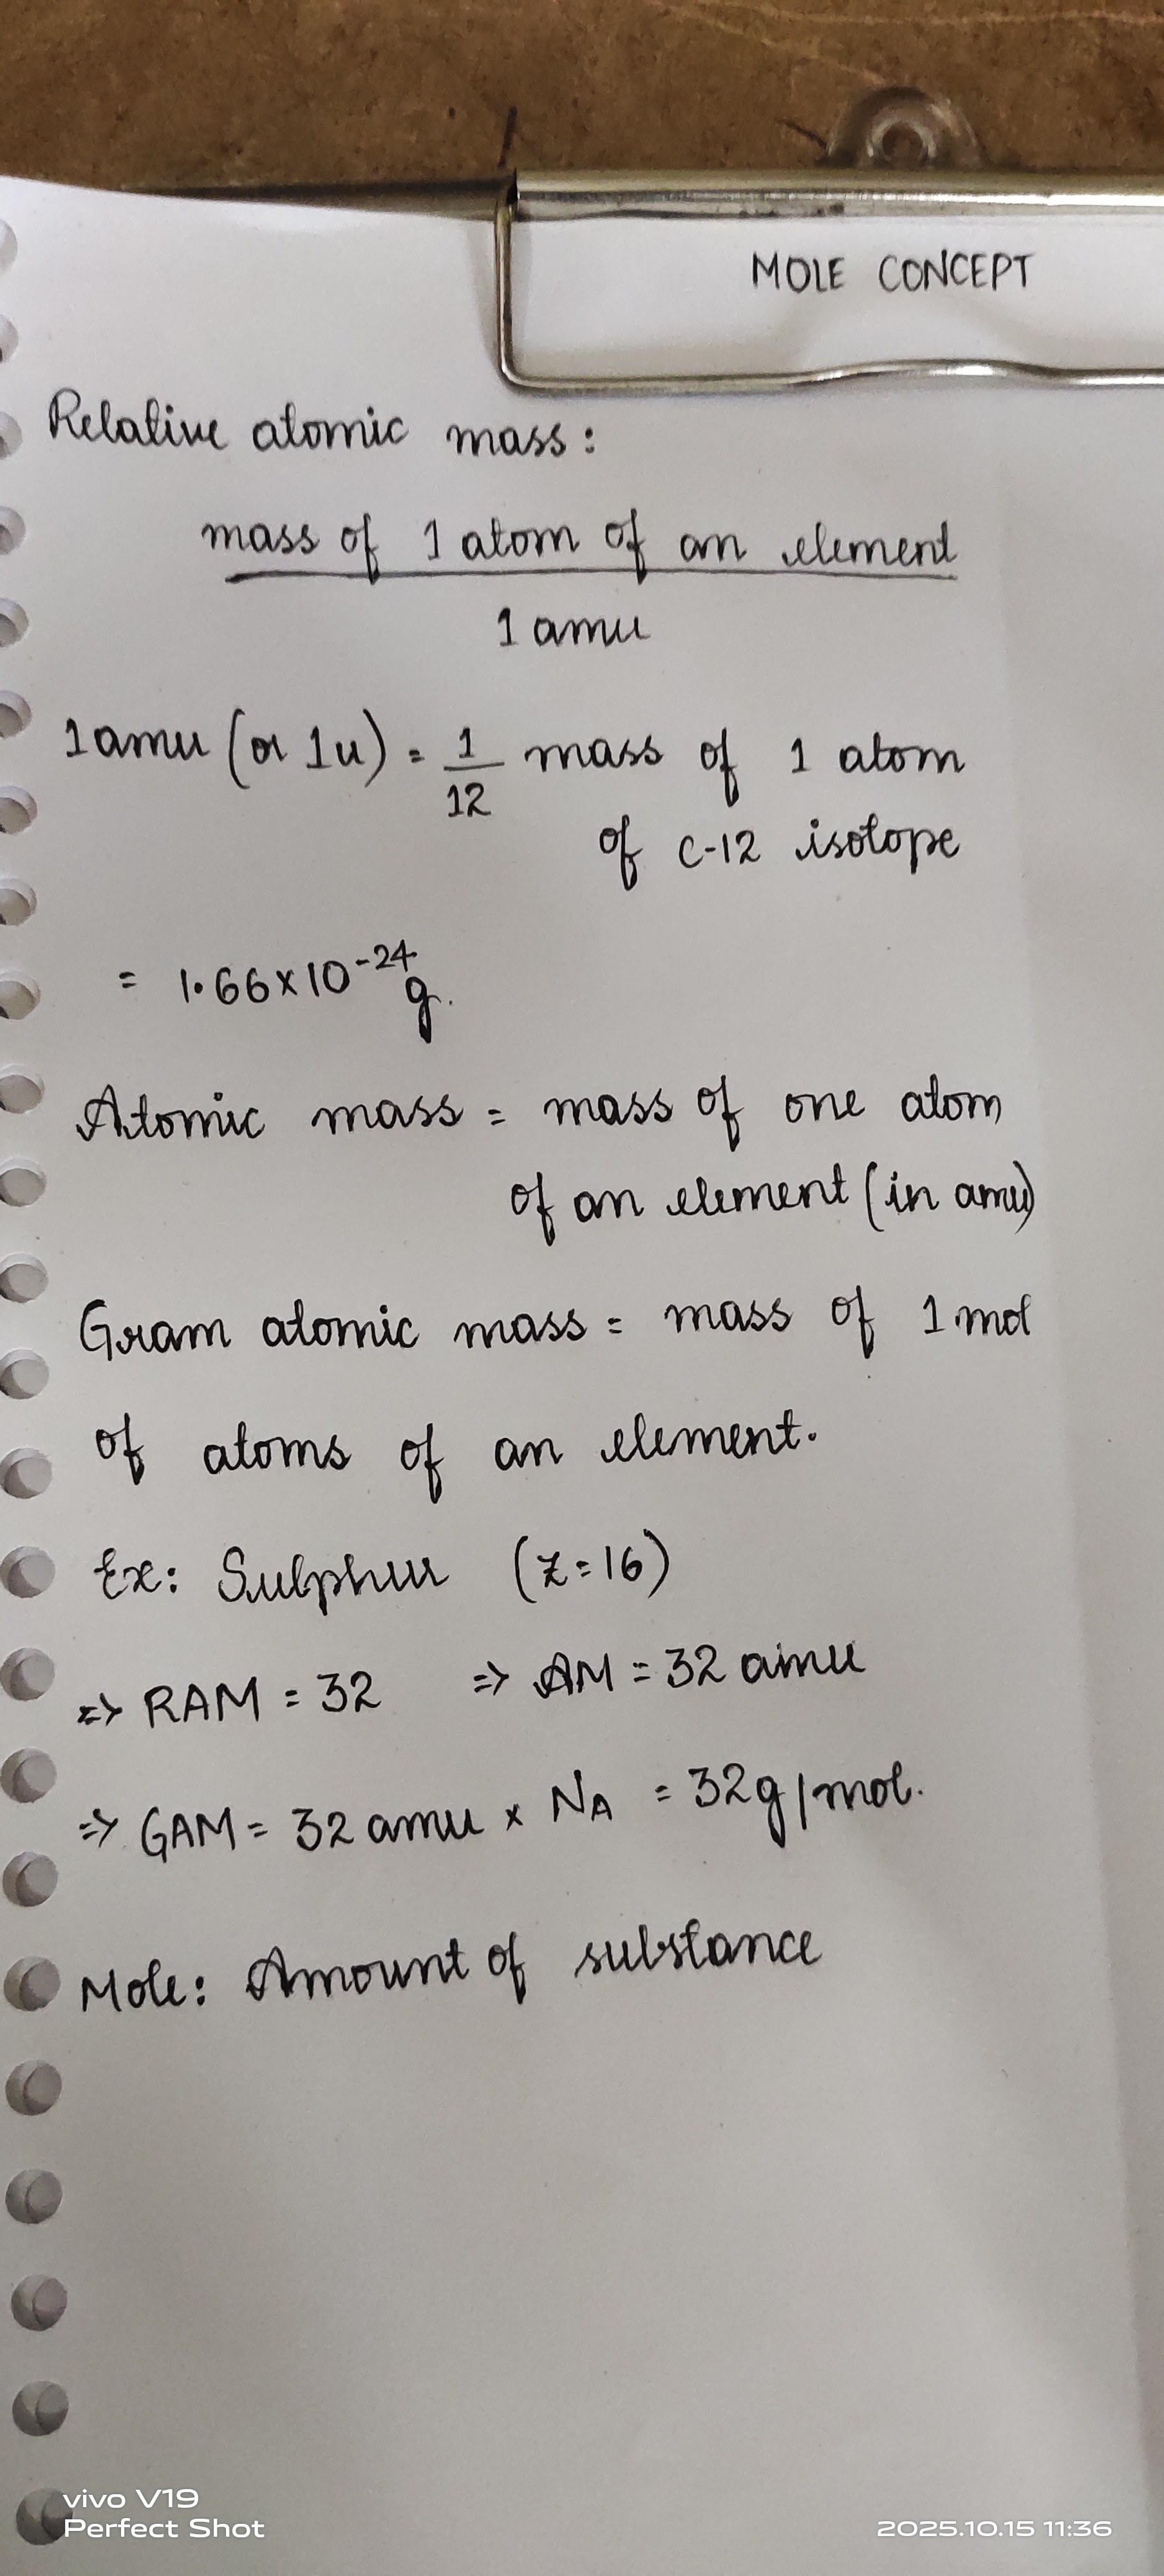 MOLE CONCEPT
Relative atomic mass:
mass of 1 atom of an element
1 amu
1 amu (or 1u) = 1/12 mass of 1 atom
of C-12 isotope
= 1.66×10⁻²⁴ g.
Atomic mass = mass of one atom
of an element (in amu)
Gram atomic mass = mass of 1 mol
of atoms of an element.
Ex: Sulphur (Z=16)
=> RAM = 32 => AM = 32 amu
=> GAM = 32 amu × NA = 32g/mol.
Mole: Amount of substance
vivo V19
Perfect Shot
2025.10.15 11:36